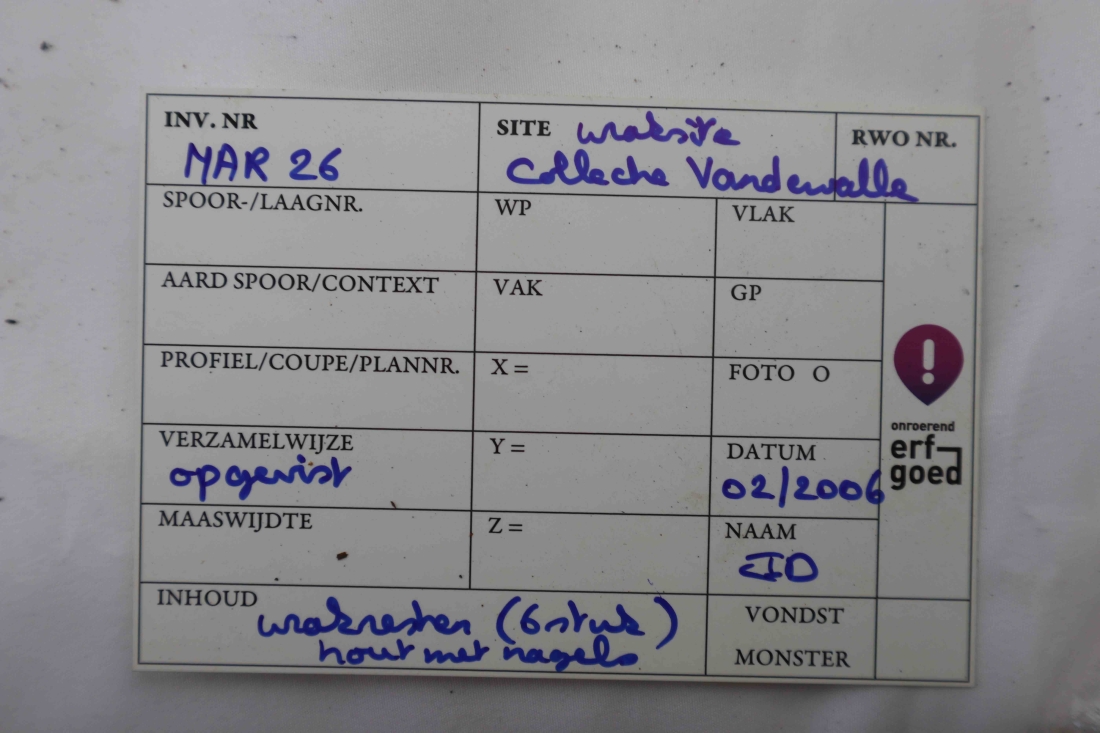 INV. NR
MAR 26
SITE wraksite
Collectie Vandewalle
RWO NR.
SPOOR-/LAAGNR.
WP
VLAK
AARD SPOOR/CONTEXT
VAK
GP
PROFIEL/COUPE/PLANNR.
X =
FOTO O
VERZAMELWIJZE
opgevist
Y =
DATUM
02/2006
MAASWIJDTE
Z =
NAAM
ID
INHOUD
wrakresten (6 stuk)
hout met nagels
VONDST
MONSTER
onroerend
erf-
goed